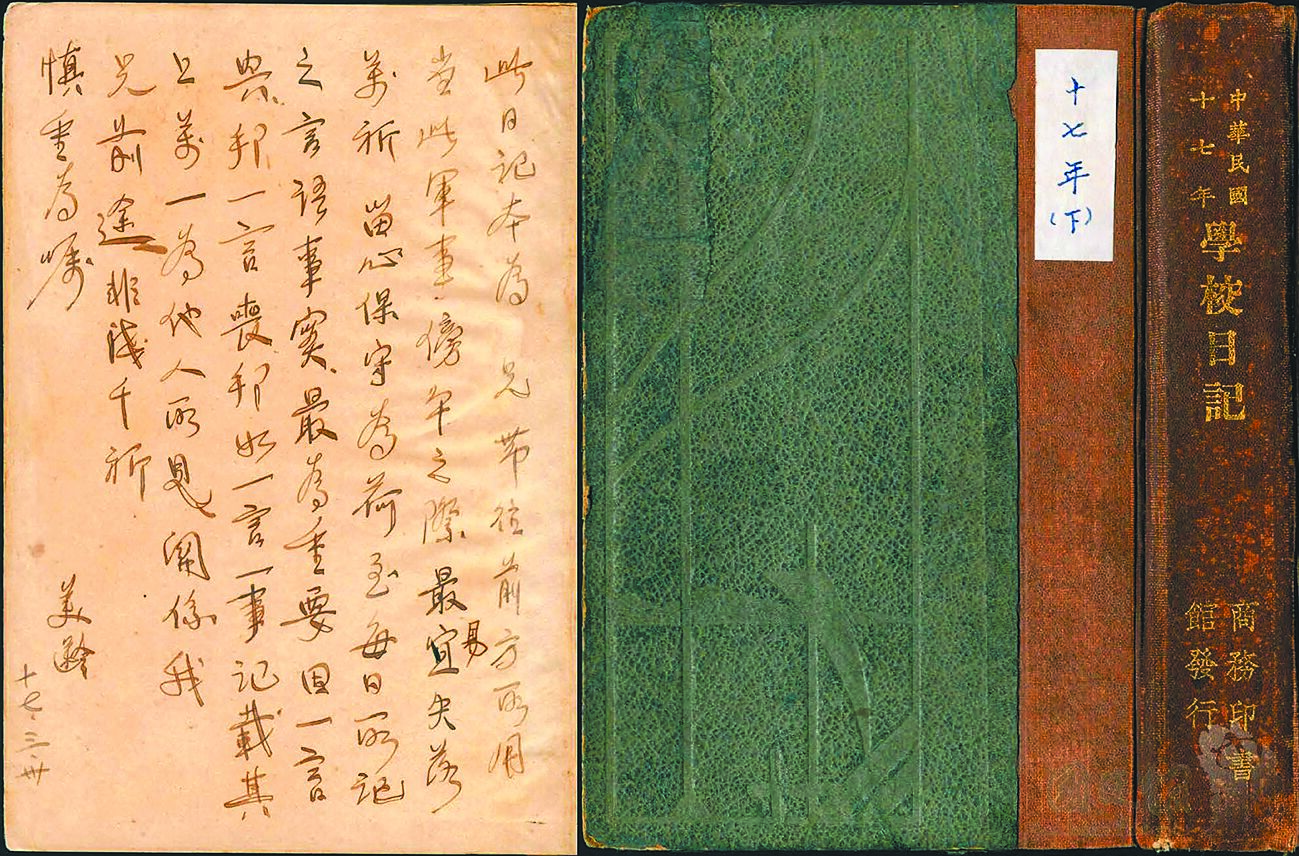 此日記本為 兄帶往前方所用
當此軍事傍午之際最宜失落
易
萬祈留心保守為荷至每日所記
之言語事實最為重要因一言
興邦一言喪邦如一言一事記載其
上萬一為他人所見關係我
兄前途非淺千祈
慎重為囑
美齡
十七.三.卅
十七年(下)
中華民國
十七年
學校日記
商務印書
館發行